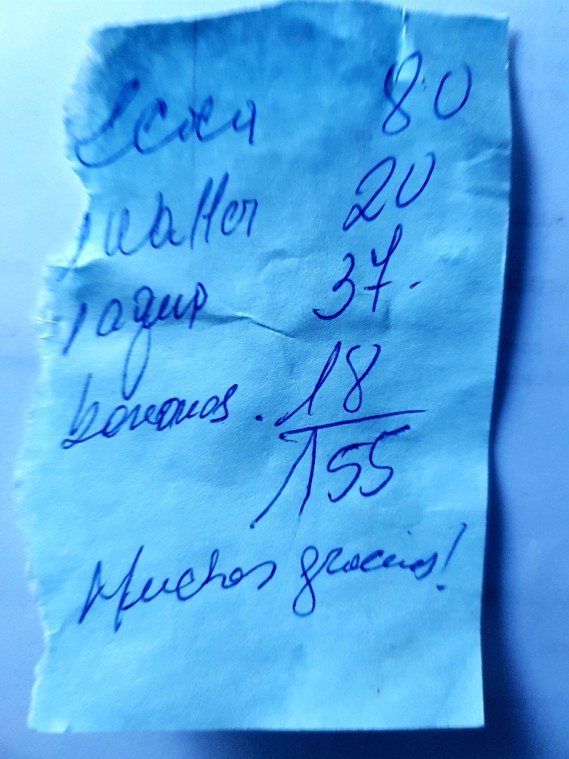 2 coca 80
1 Walter 20
1 agua 37.
bananas. 18
155
Muchas gracias!